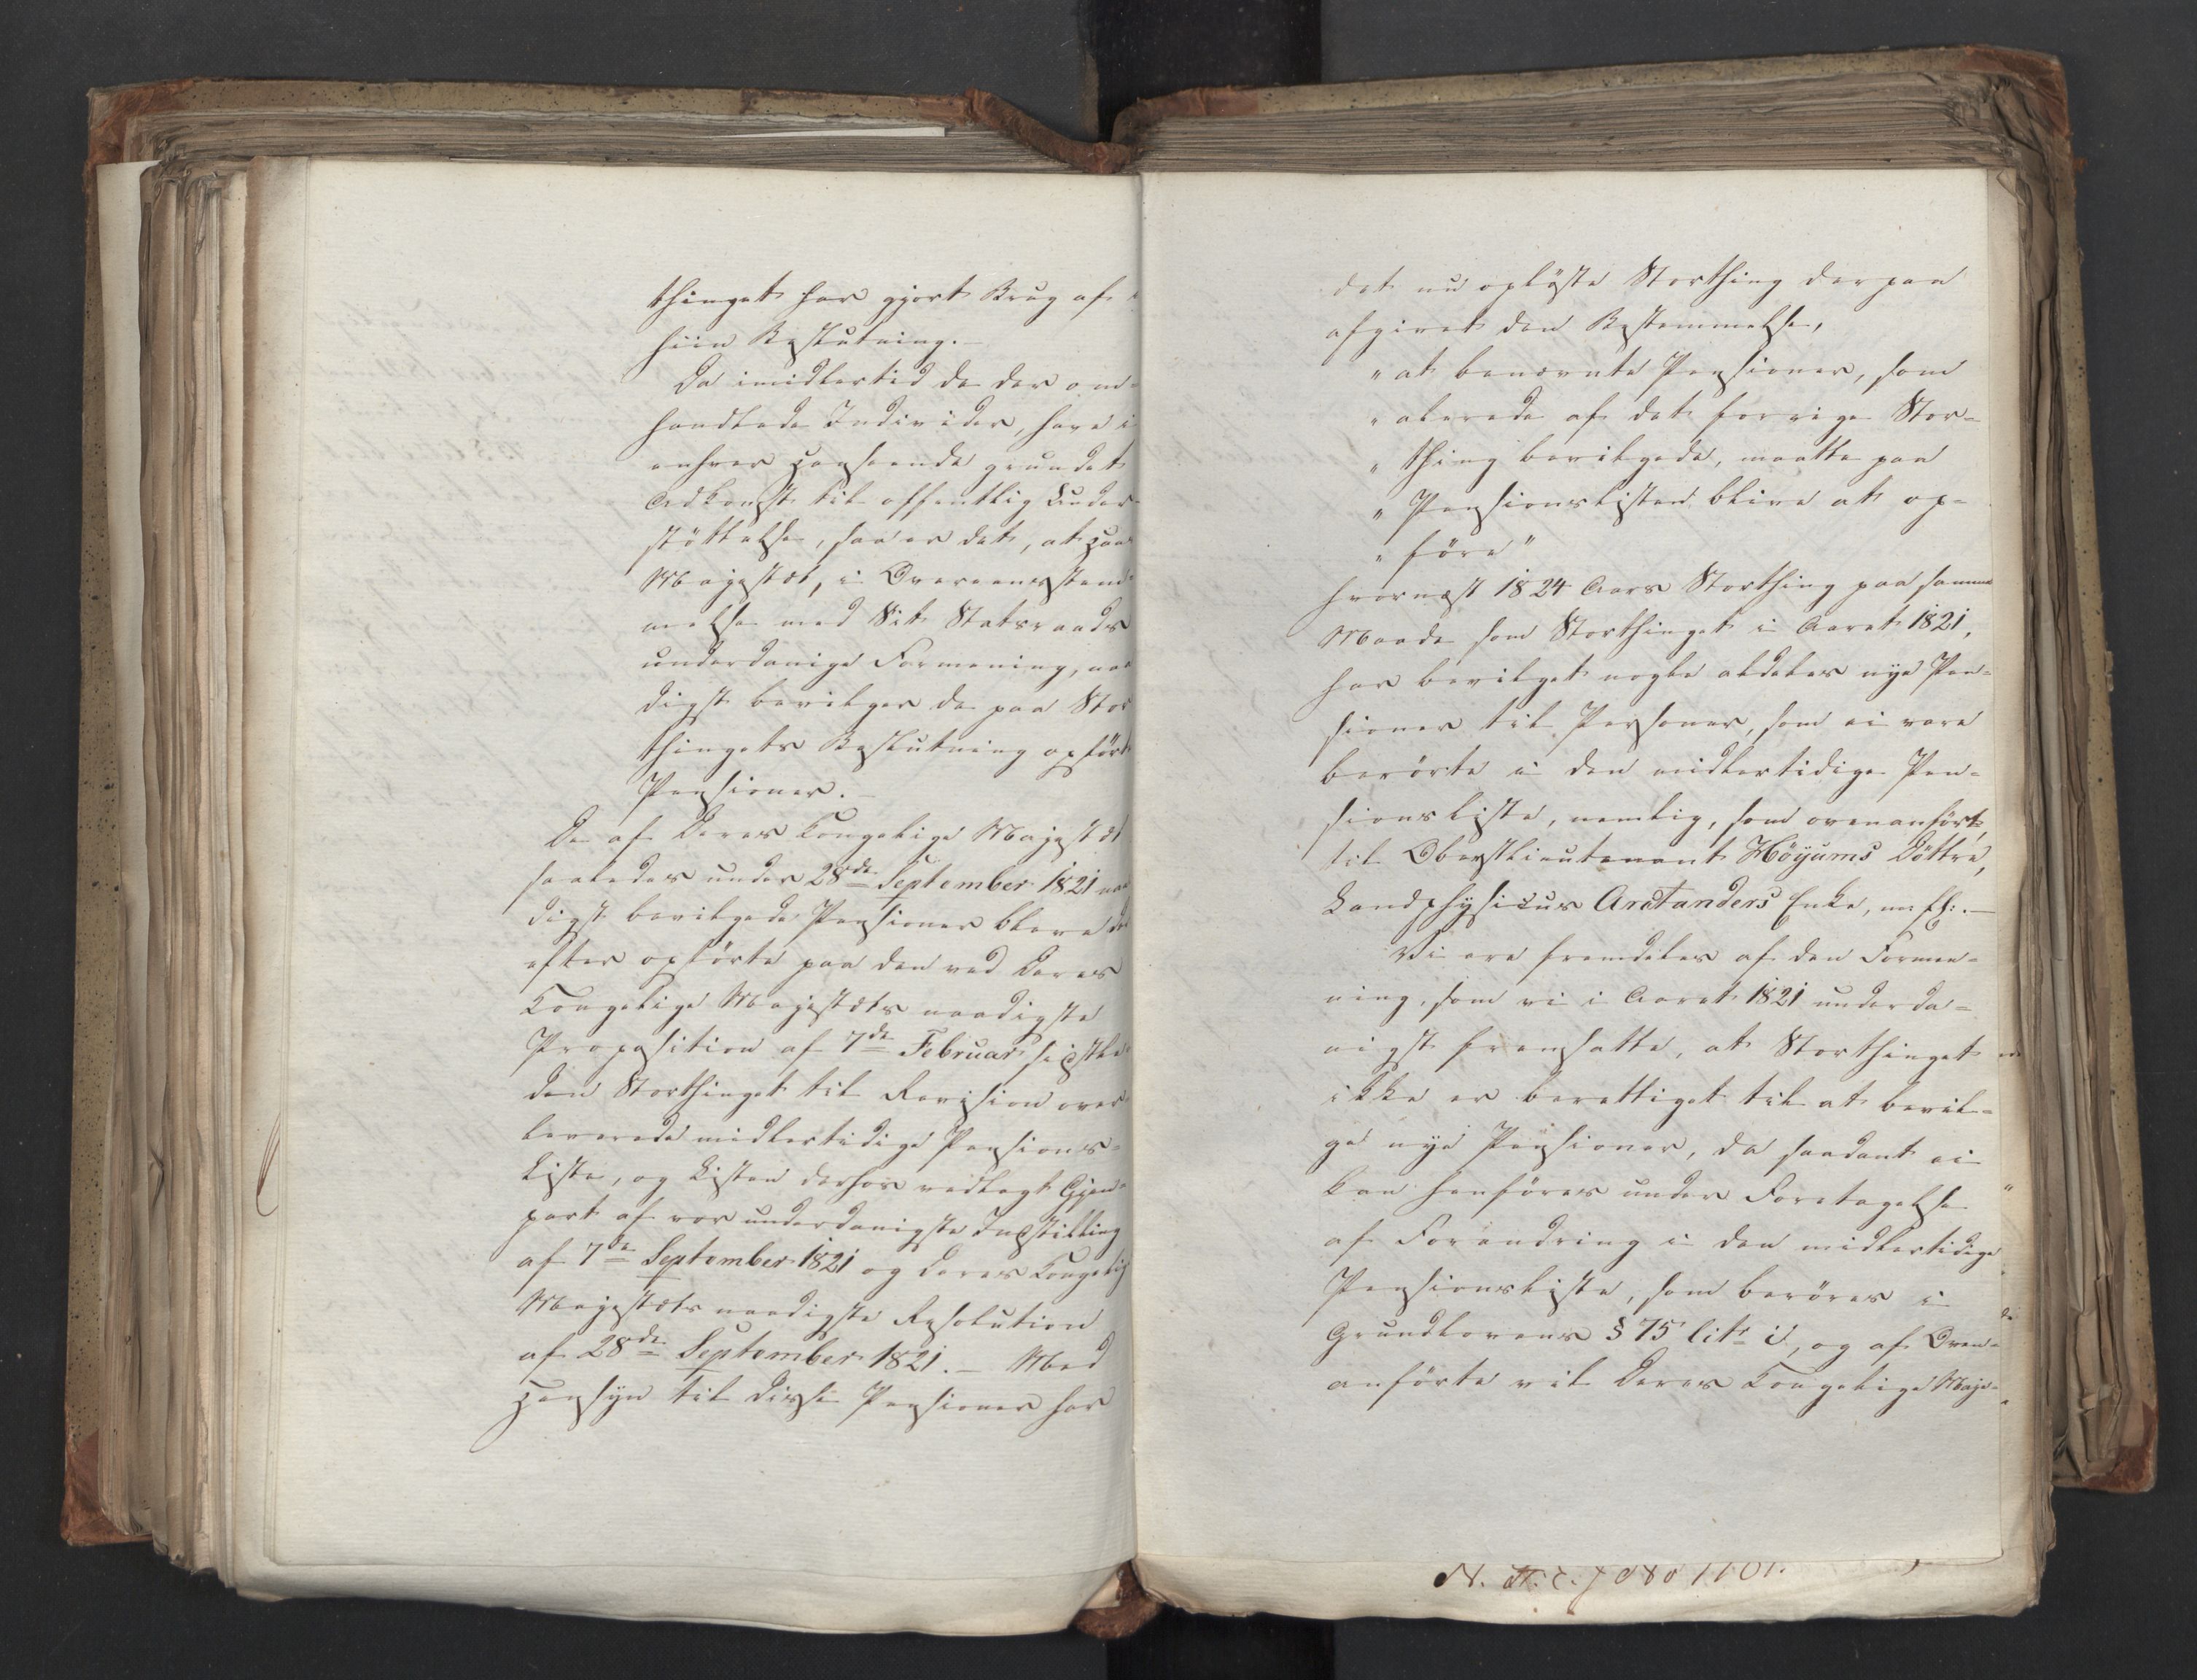 thinget har gjort Brug af
hiin Beslutning.—
Da imidlertid de der om-
handlede Individer, have i
enhver Henseende grundet
Adkomst til offentlig Under-
støttelse, saa er det, at Hans
Majestæt, i Overeensstem-
melse med Sit Statsraads
underdanige Formening, naa
digst bevilger de paa Stor
thingets Beslutning opførte
Pensioner.—
De af Deres Kongelige Majestæt
saaledes under 28de September 1821 naa
digst bevilgede Pensioner bleve der
efter opførte paa den ved Deres
Kongelige Majestæts naadigste
Proposition af 7de Februar sidstle-
den Storthinget til Revision over-
leverede midlertidige Pensions-
Liste, og Listen derhos vedlagt Gjen-
part af vor underdanigste Indstilling
af 7de September 1821 og Deres Kongelig
Majestæts naadigste Resolution
af 28de September 1821.— Med
Hensyn til disse Pensioner har
det nu opløste Storthing derpaa
afgivet den Bestemmelse,
"at benævnte Pensioner, som
"allerede af det forrige Stor-
"thing bevilgede, maatte paa
"Pensionslisten blive at op-
"føre"
hvornæst 1824 Aars Storthing paa samme
Maade som Storthinget i Aaret 1821,
har bevilget nogle aldeles nye Pen-
sioner til Personer, som ei vare
berørte i den midlertidige Pen-
sionsliste, nemlig, som ovenanført,
til Oberstlieutenant Höyums Döttre,
Landphysicus Arctanders Enke, m: fl:.—
Vi ere fremdeles af den Forme-
ning, som vi i Aaret 1821 underda-
nigst fremsatte, at Storthinget
ikke er berettiget til at bevil-
ge nye Pensioner, da saadant ei
kan henføres under Foretagelse
af Forandring i den midlertidige
Pensionsliste, som berøres i
Grundlovens § 75 litr i, og af Oven-
anførte vil Deres Kongelige Maje-